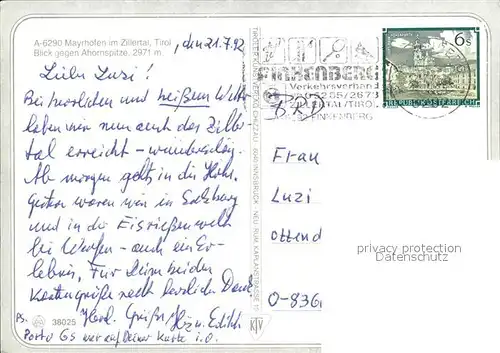 A-6290 Mayrhofen im Zillertal, Tirol
Blick gegen Ahornspitze, 2971 m.
, den 21.7.92
Liebe Luzi!
Bei herrlichen und heißem Wetter
haben wir nun auch das Ziller-
tal erreicht - wunderschön.
Ab morgen gehts in die Höhe.
Gestern waren wir in Salzburg
und in der Eisriesenwelt
bei Werfen - auch ein Er-
lebnis. Für Deine beiden
Kartengrüße noch herzlichen Dank.
Herzl. Grüße u. Edith
PS. Porto 6s war auf Deiner Karte i.O.
38025
TIROLER KUNSTVERLAG CHIZZALI · 6020 INNSBRUCK · NEU-RUM, KAPLANSTRASSE 10
KTV
FINKENBERG
Verkehrsverband
05285/2673
ZILLERTAL/TIROL
FINKENBERG
6s
REPUBLIK ÖSTERREICH
BRD
Frau
Luzi
Ottend
O-836
privacy protection
Datenschutz